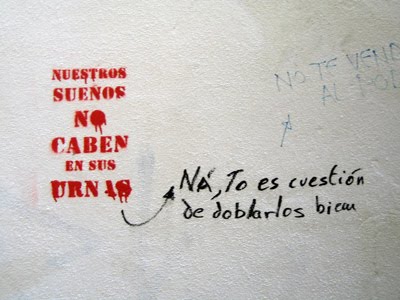 NUESTROS
SUEÑOS
NO
CABEN
EN SUS
URNAS
NÁ, To es cuestión
de doblarlos bien
NO TE VEND
AL